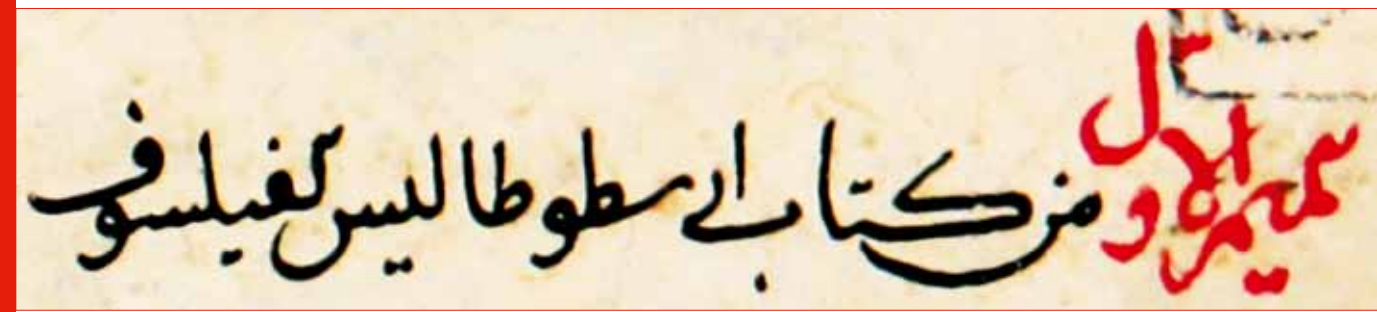 الميمر الاول من كتاب ارسطوطاليس الفيلسوف